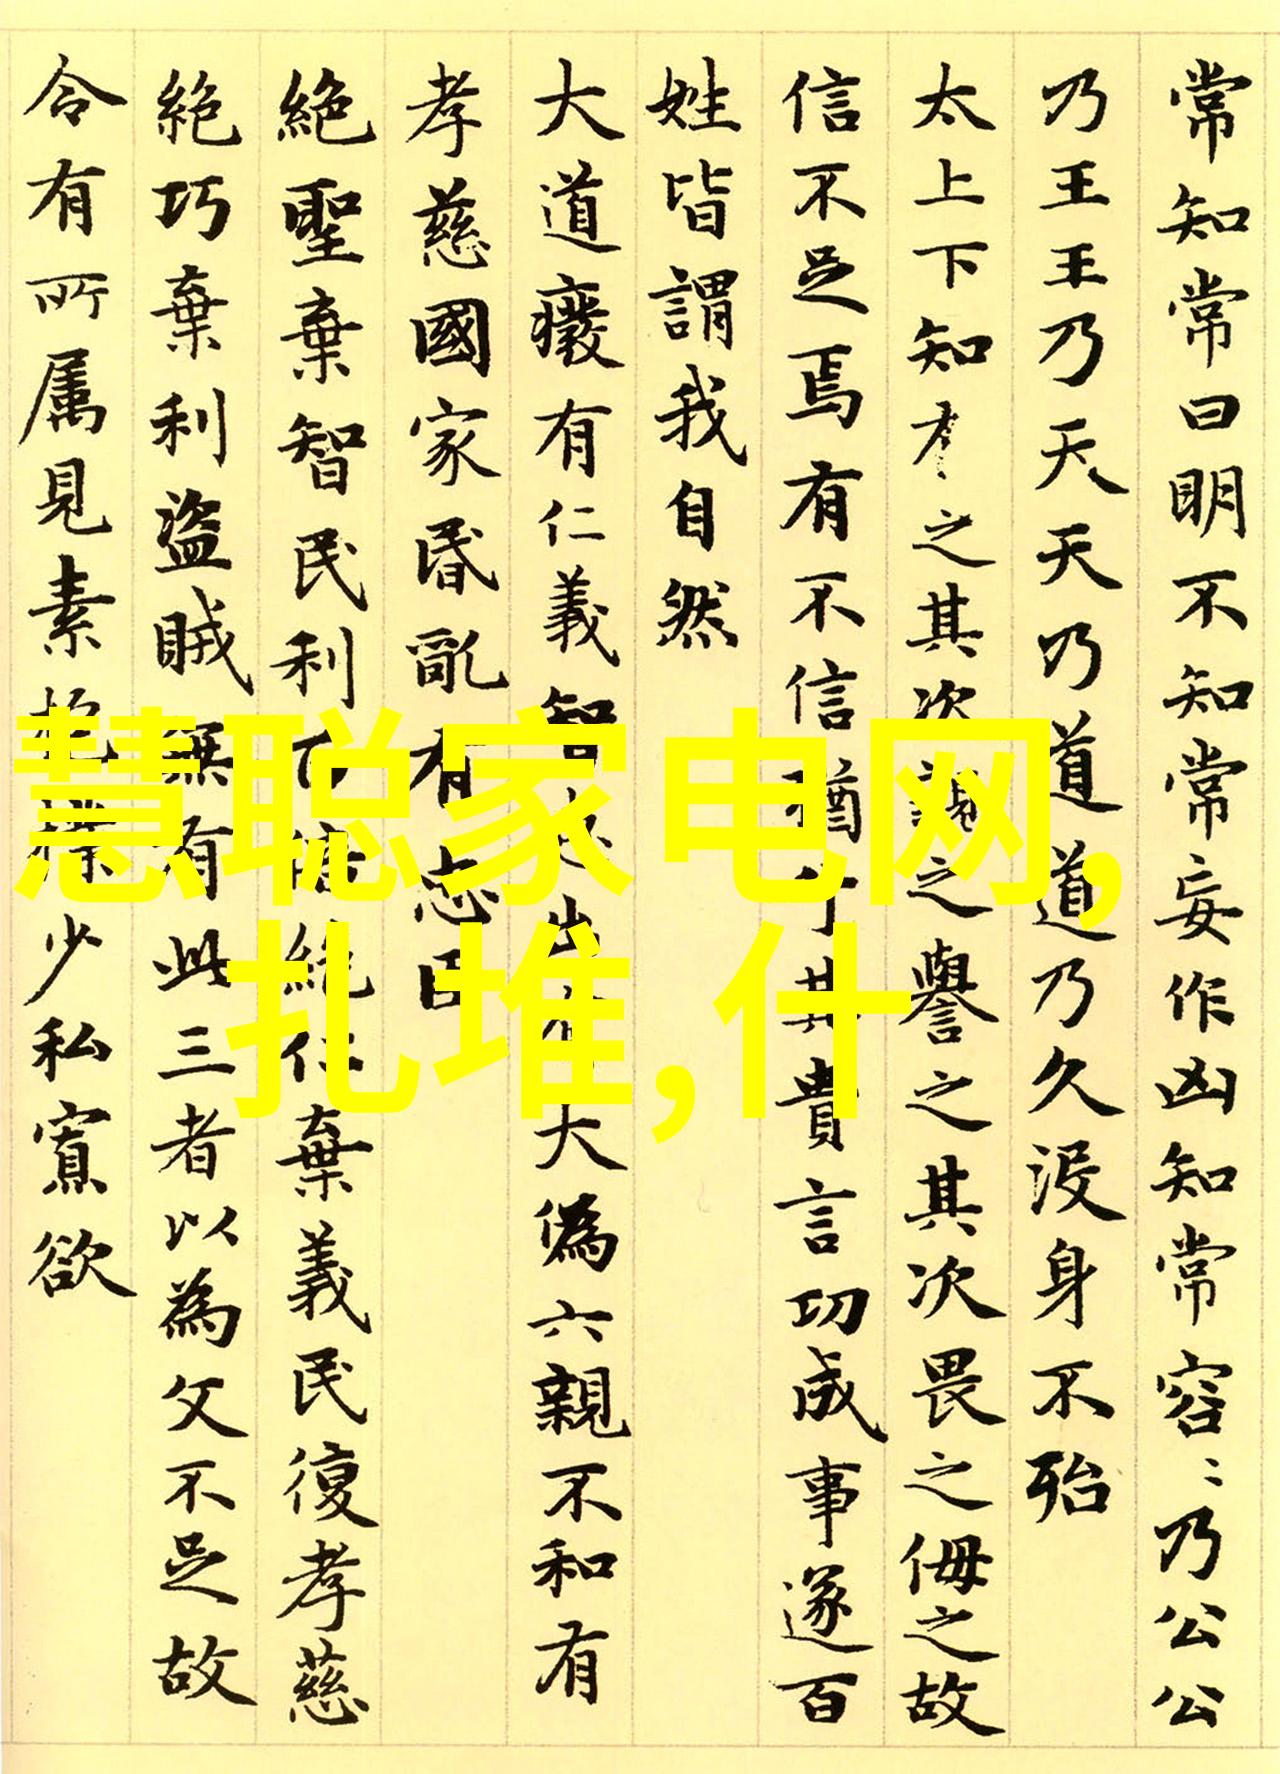 常知常曰明不知知常妄作凶知常容〻乃公公
乃王王乃天天乃道道乃久没身不殆
太上下知有之其次親之譽之其次畏之侮之故
信不足焉有不信信猶其貴言功成事遂百
姓皆謂我自然
大道癈有仁義智出大偽六親不和有
孝慈國家昏亂有忠臣
絶聖棄智民利百絶仁棄義民復孝慈
絶巧棄利盗賊無有此三者以為文不足故
令有所属見素抱樸少私寡欲
慧聪家电网,
扎堆,什